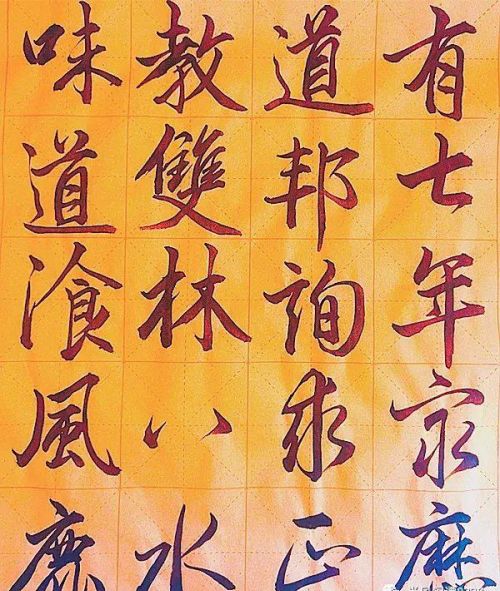 有七年窮歷
道邦詢求正
教雙林八水
味道湌風鹿